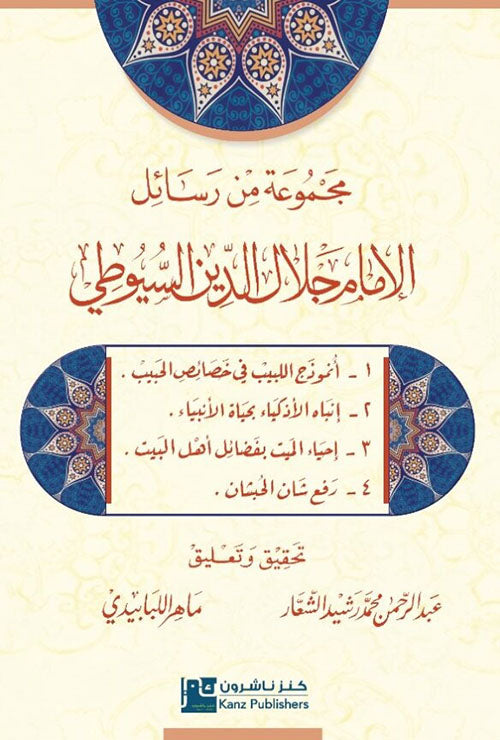 مجْمُوعَة مِنْ رَسَائِل
الإمَام جَلَال الدِّين السُّيُوطِي
١ - أنموذَج اللبيبْ في خَصَائِص الحبيبْ .
٢ - إنبَاه الأذكيَاء بحيَاة الأنبيَاء .
٣ - إحيَاء الميت بفضَائل أهْل البَيت .
٤ - رَفع شَان الحُبشَان .
تحقِيق وَتَعليق
عَبد الرّحمٰن محمَّد رَشيد الشّعَّار ماهِر اللبَابيدي
كنز ناشرون
Kanz Publishers